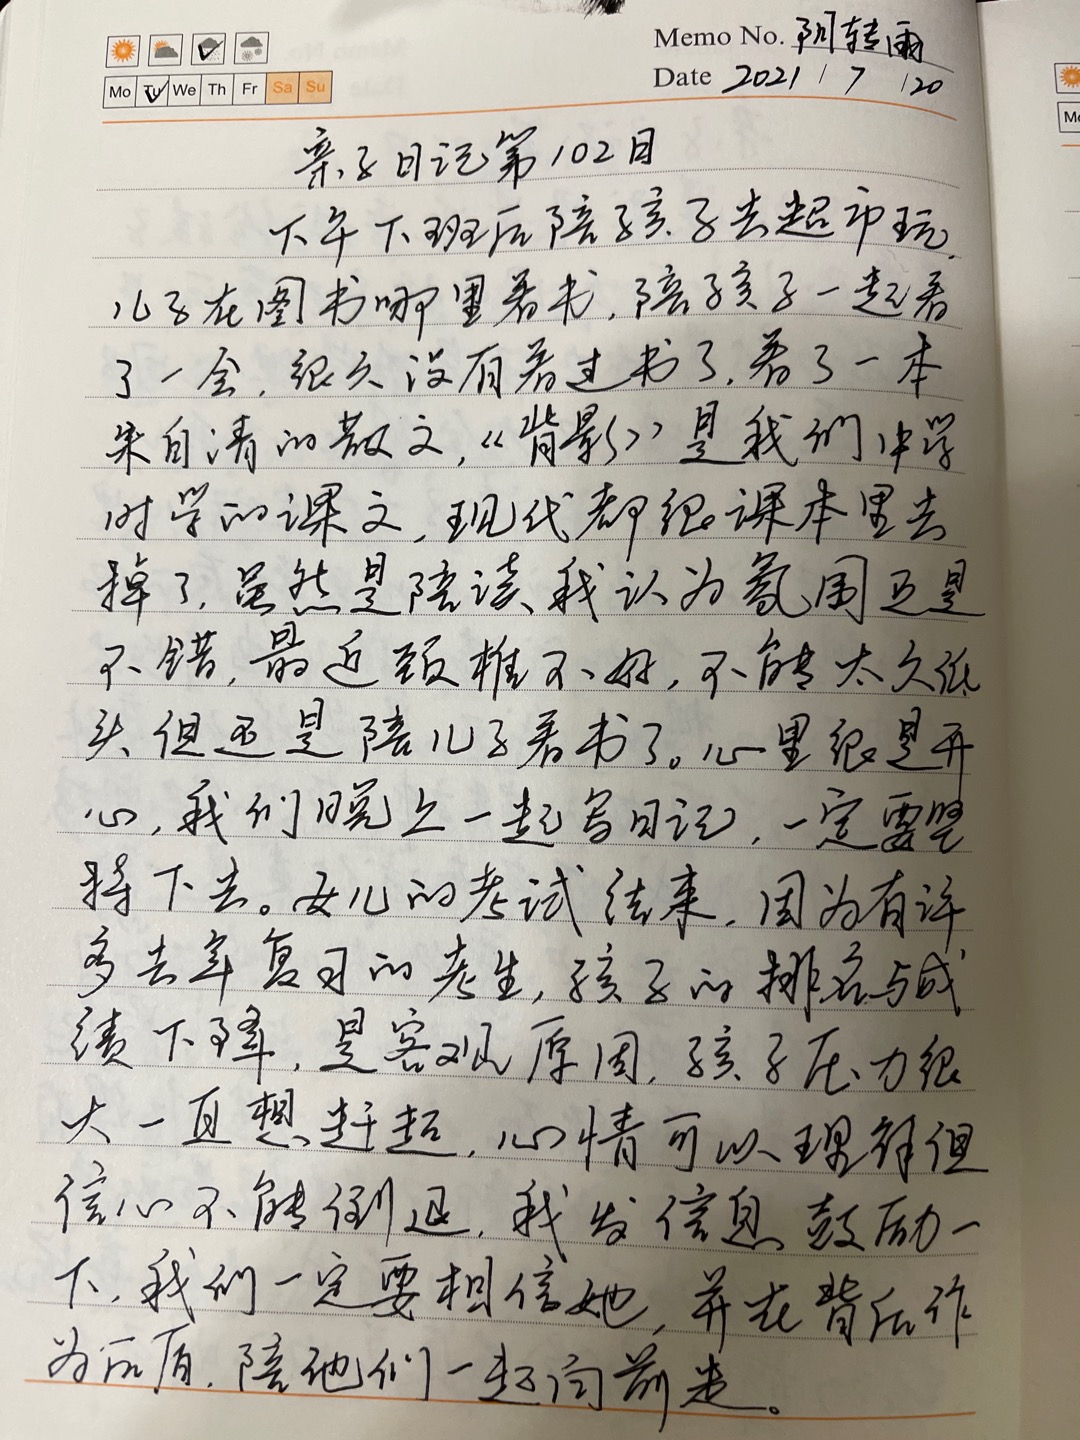 Memo No. 阴转雨
Mo Tu We Th Fr Sa Su
Date 2021 / 7 / 20
亲子日记第102日
下午下班后陪孩子去超市玩,
儿子在图书哪里看书,陪孩子一起看
了一会,很久没有看过书了,看了一本
朱自清的散文,《背影》是我们中学
时学的课文,现代都很课本里去
掉了,虽然是陪读,我认为氛围还是
不错,最近颈椎不好,不能太久低
头但还是陪儿子看书了。心里很是开
心,我们晚上一起写日记,一定要坚
持下去。女儿的考试结束,因为有许
多去年复习的考生,孩子的排名与成
绩下降,是客观原因,孩子压力很
大一直想赶超,心情可以理解但
信心不能倒退,我发信息鼓励一
下,我们一定要相信她,并在背后作
为后盾,陪他们一起向前走。